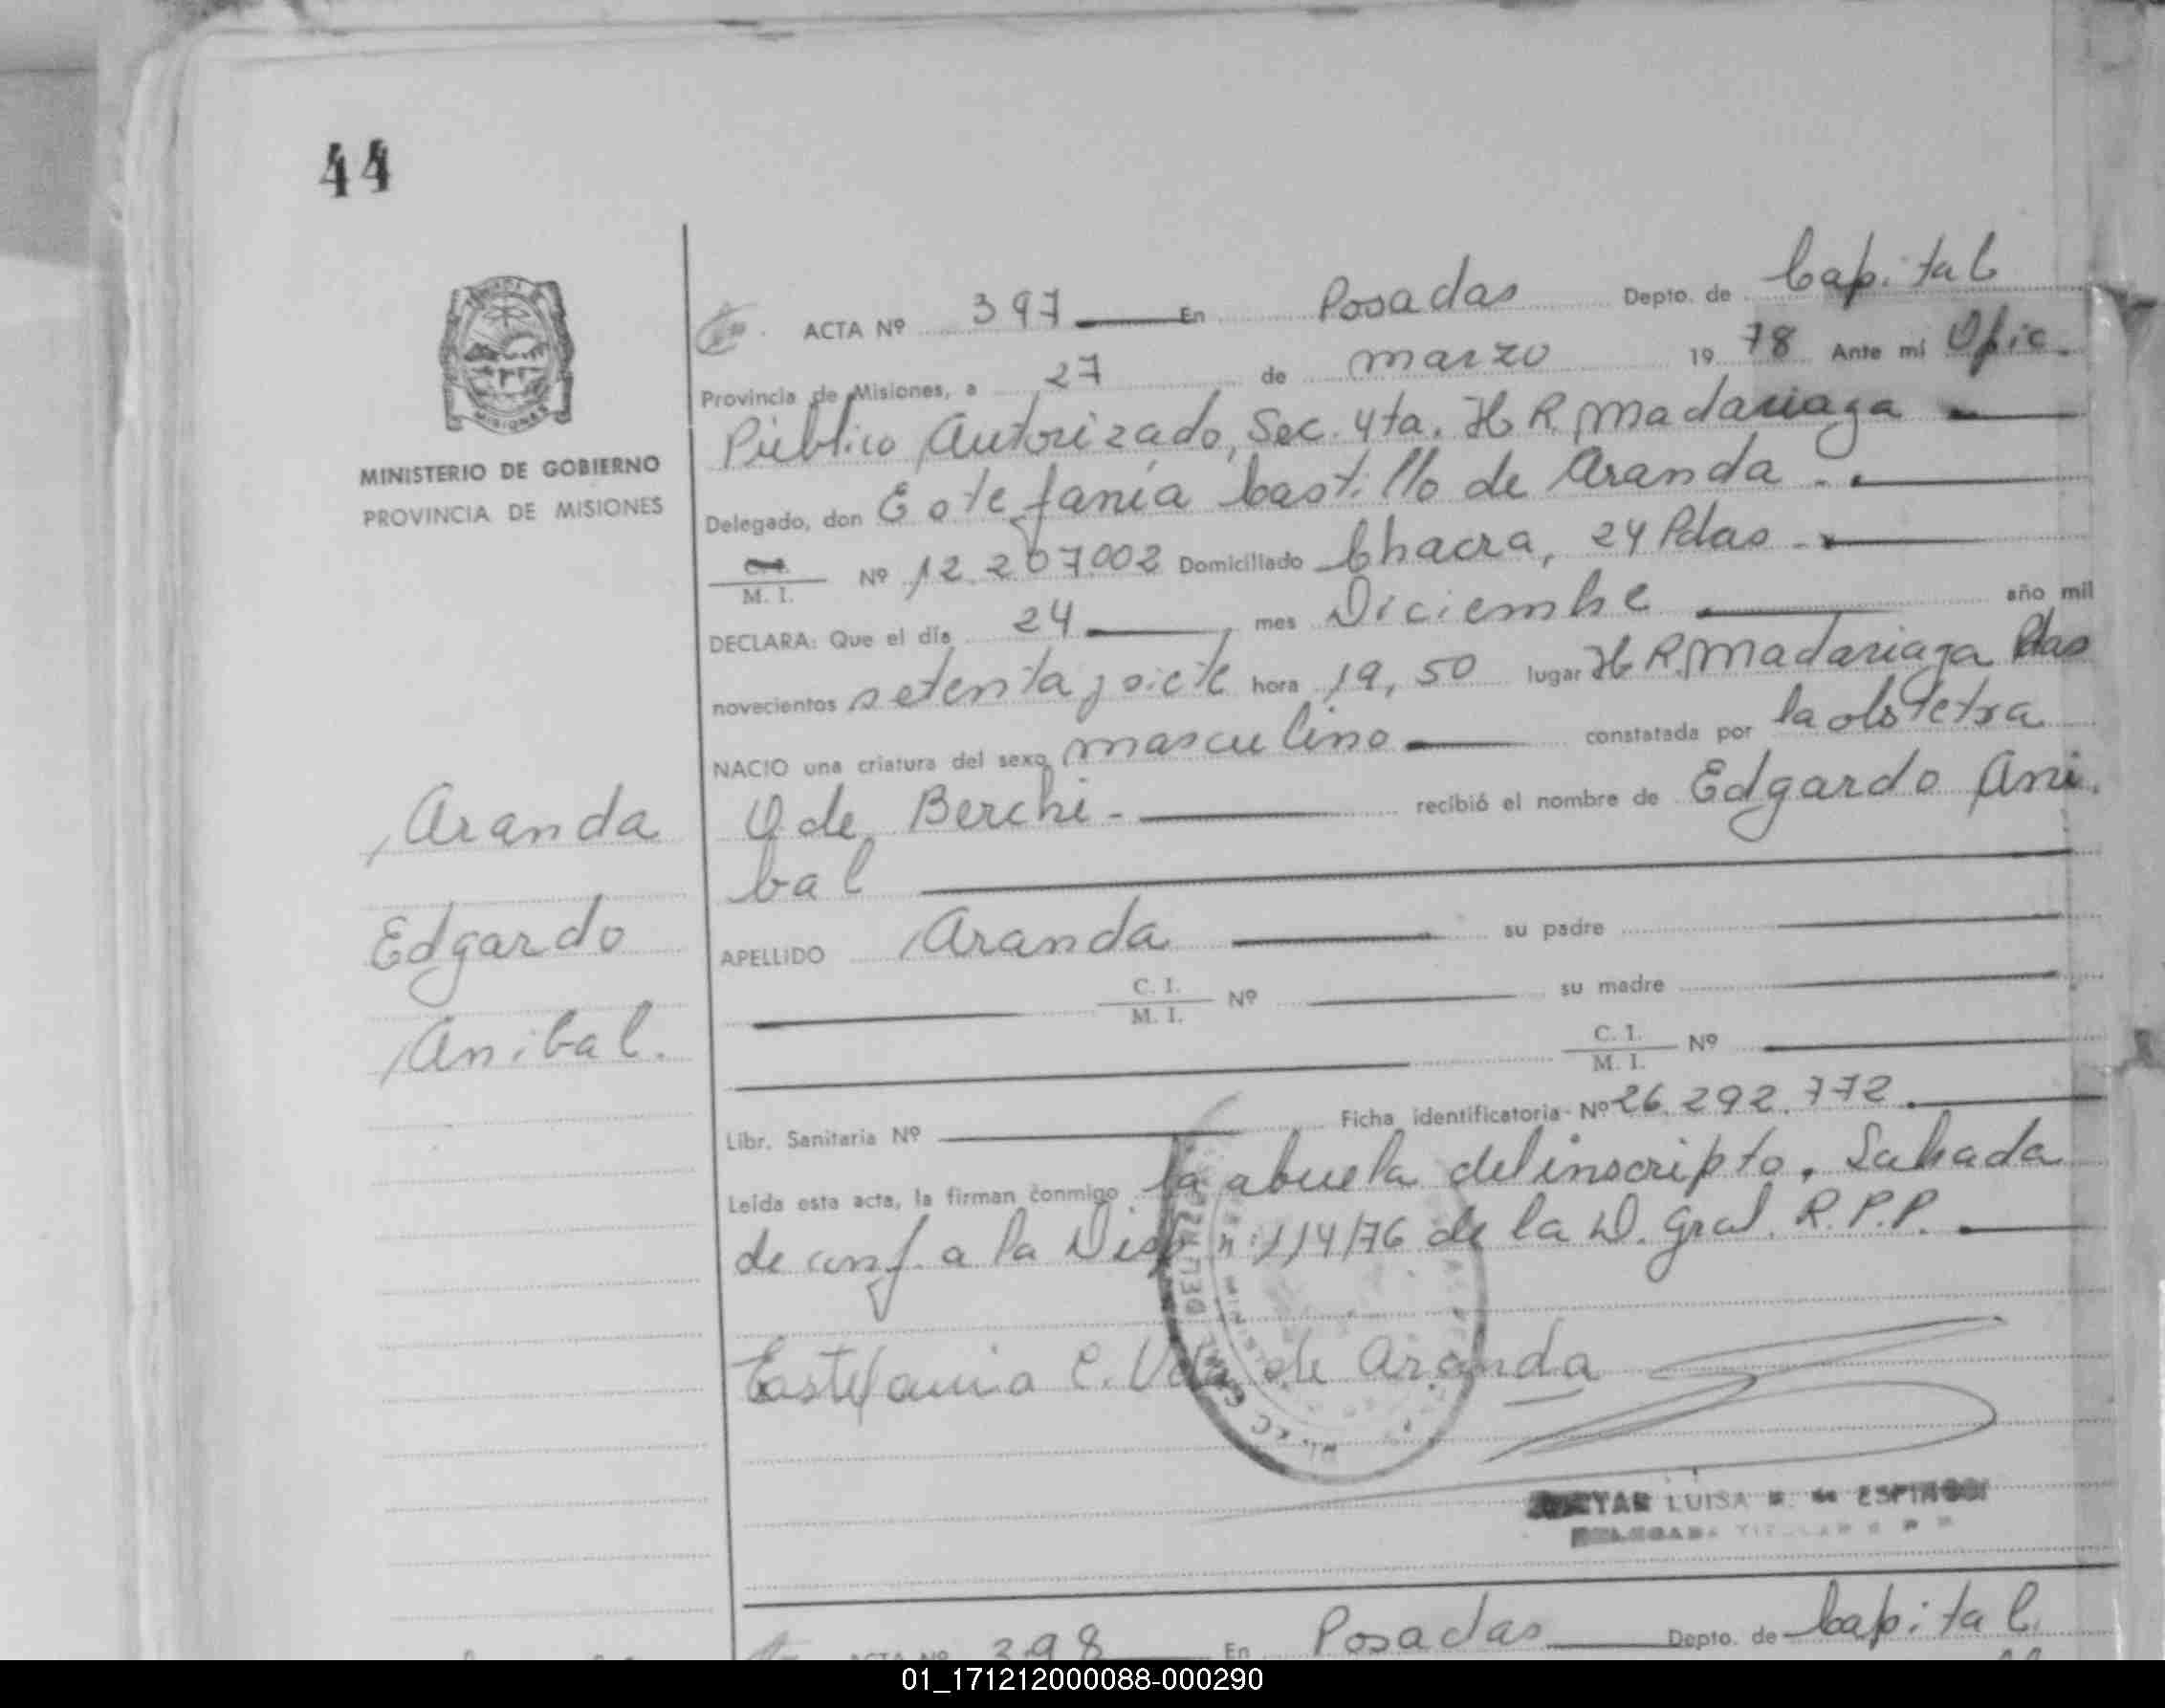 44
MINISTERIO DE GOBIERNO
PROVINCIA DE MISIONES
ACTA Nº 397 En Posadas Depto. de Capital
Provincia de Misiones, a 27 de marzo 19 78 Ante mí Ofic.
Público Autorizado, Sec. 4ta. H R. Madariaga
Delegado, don Estefanía Castillo de Aranda.
M. I. Nº 12.207.002 Domiciliado Chacra, 24 Pdas.
DECLARA: Que el día 24 mes Diciembre año mil
novecientos setenta y siete hora 19,50 lugar H R. Madariaga Pdas
NACIO una criatura del sexo masculino constatada por la obstetra
O de Berchi. recibió el nombre de Edgardo Ani.
bal
Aranda
Edgardo
Anibal.
APELLIDO Aranda su padre
C. I.
M. I. Nº su madre
C. I.
M. I. Nº
Libr. Sanitaria Nº Ficha identificatoria Nº 26.292.772.
Leída esta acta, la firman conmigo la abuela del inscripto. Labrada
de conf. a la Disp. nº 114/76 de la D. Gral. R.P.P.
Estefania C. Vda de Aranda
LUISA de
ACTA Nº 398 En Posadas Depto. de Capital
01_171212000088-000290